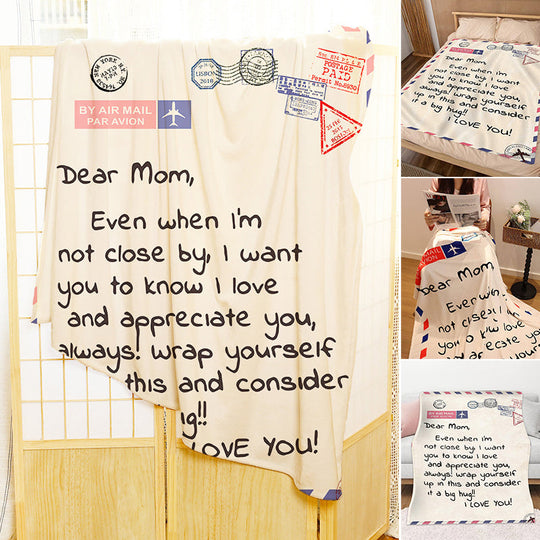 NEW YORK, NY
LISBON
2018
POSTAGE
PAID
Permit No.6930
BY AIR MAIL
PAR AVION
Dear Mom,
Even when i'm
not close by, I want
you to know I love
and appreciate you,
always! wrap yourself
this and consider
hug!!
I LOVE YOU!
Dear Mom,
Even when i'm
not close by, I want
you to know I love
and appreciate you,
always! wrap yourself
up in this and consider
it a big hug!!
I LOVE YOU!
AIR MAIL
AVION
Dear Mom
Even
not close
you to know love
Dear Mom,
Even when i'm
not close by, I want
you to know I love
and appreciate you,
always! wrap yourself
up in this and consider
it a big hug!!
I LOVE YOU!